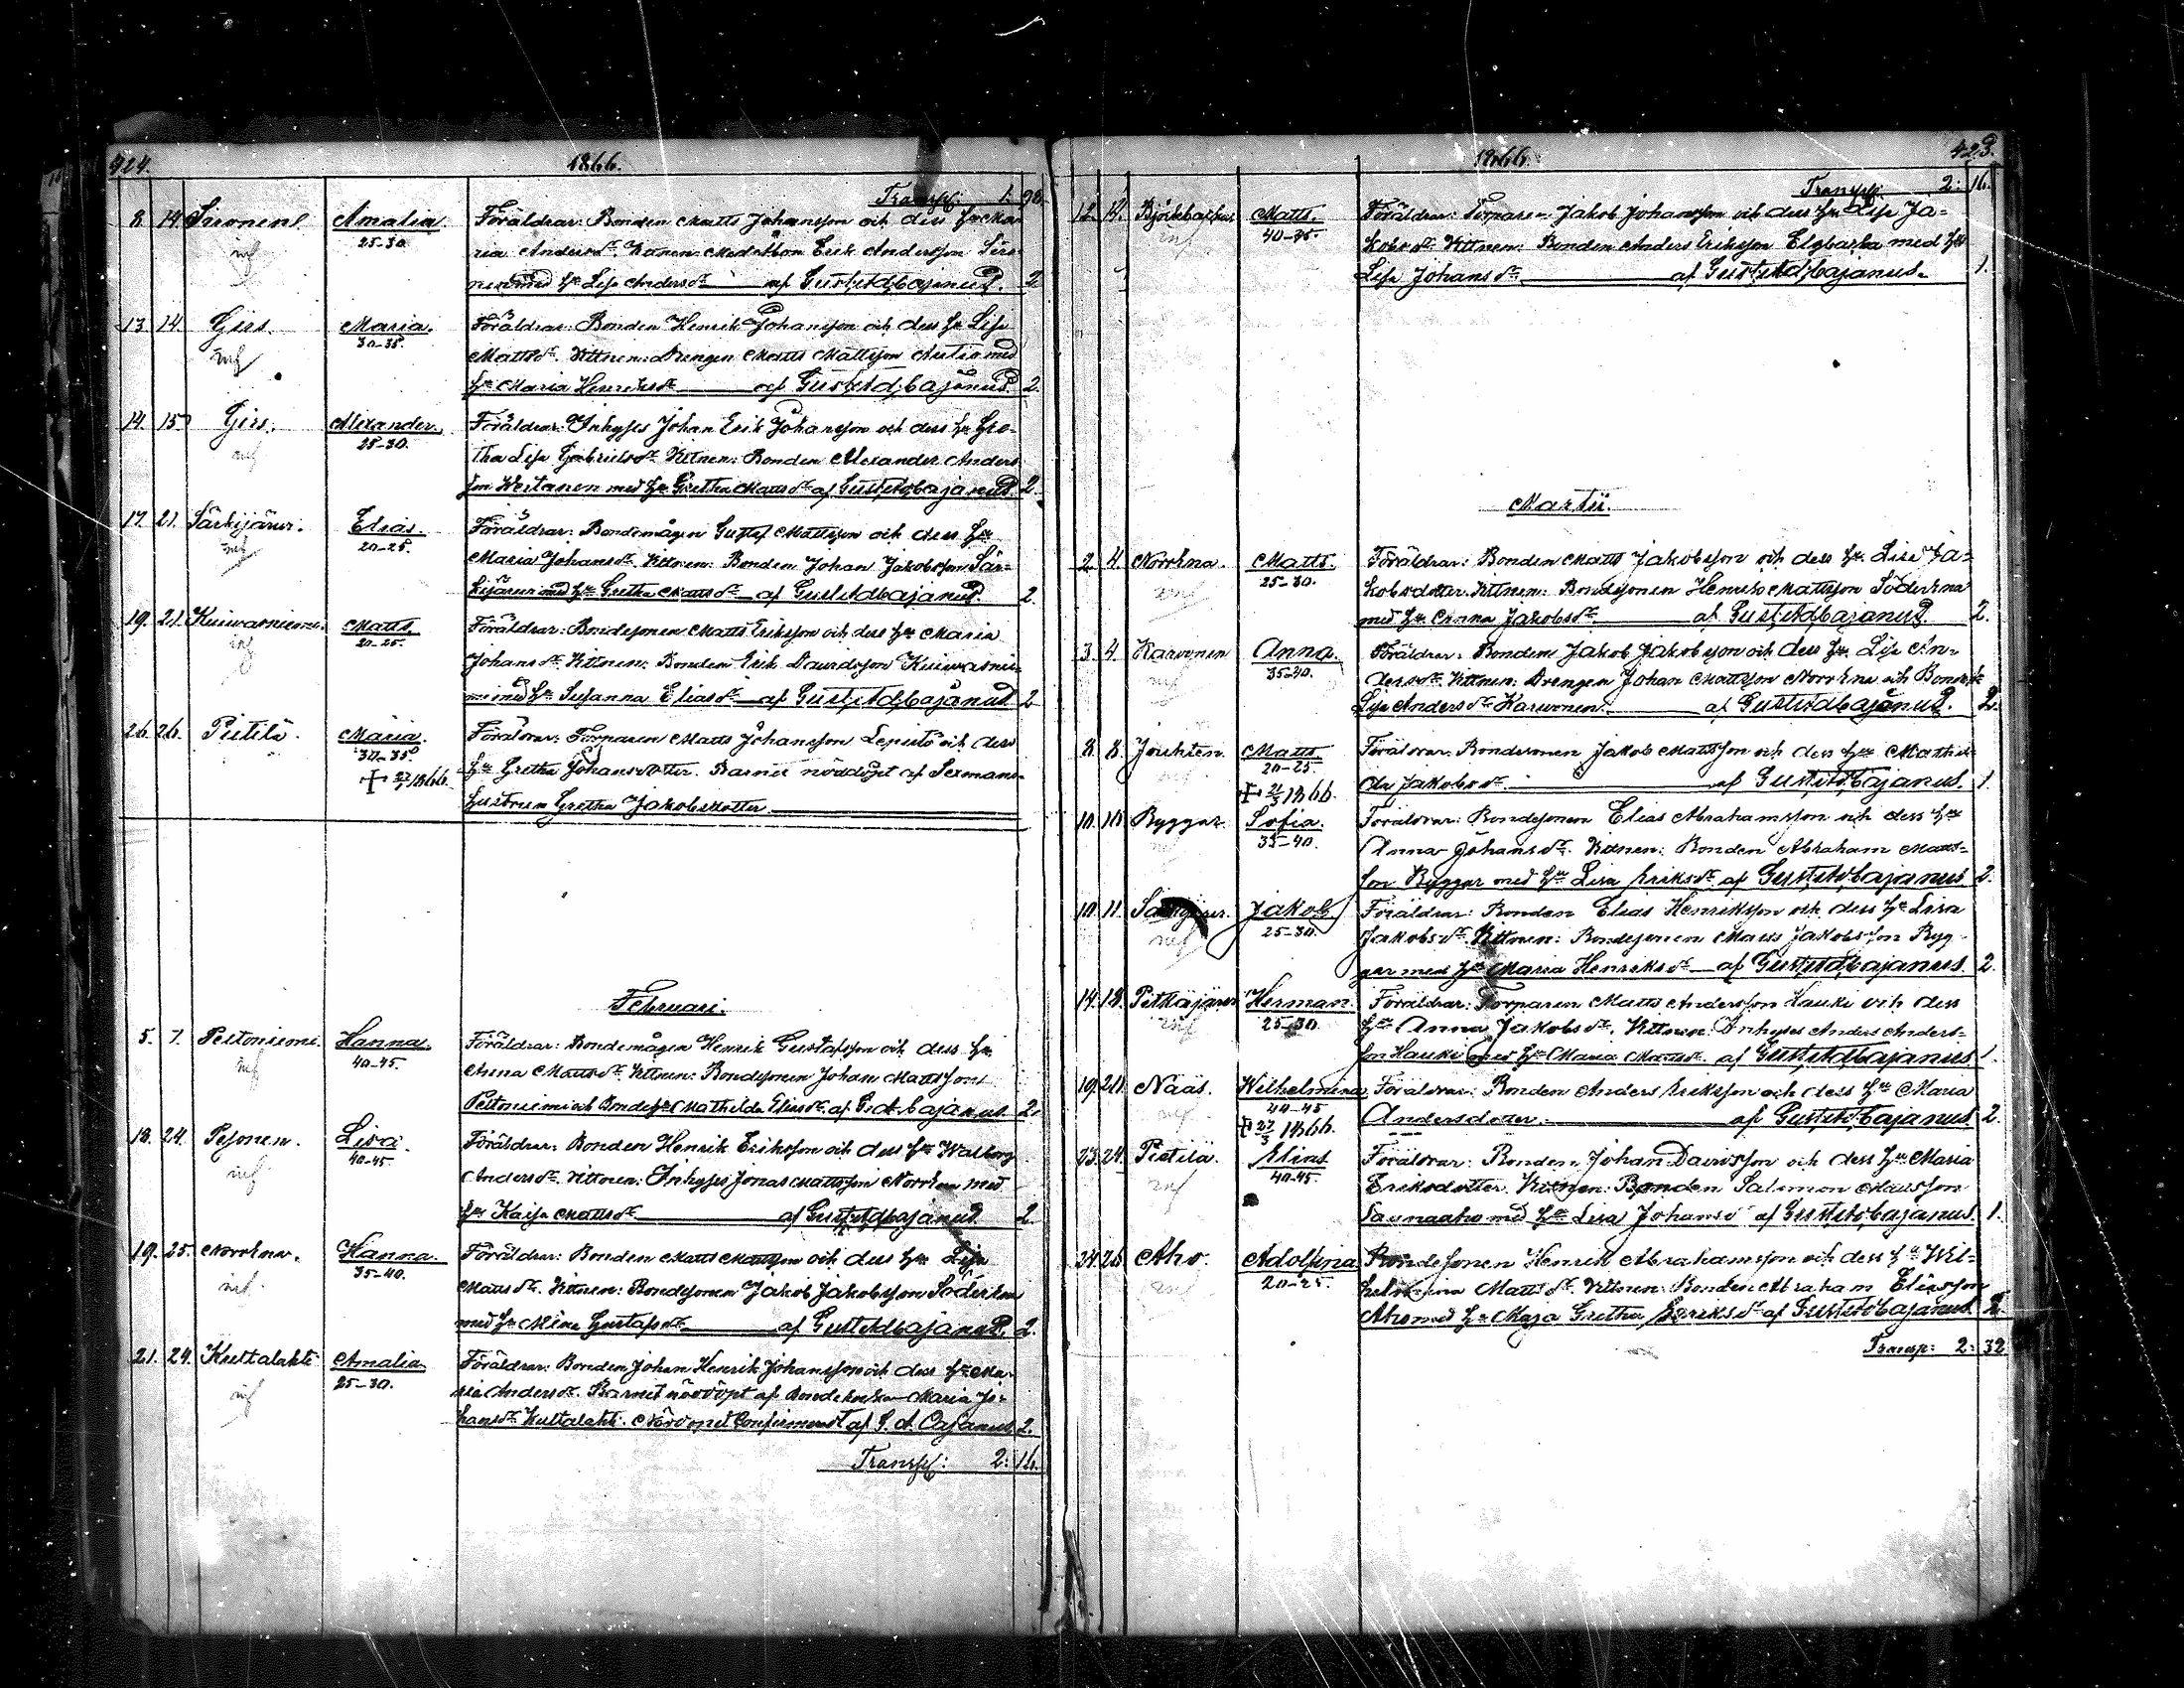 424.
1866.
Transp: 1. 98.
8. 14. Sironen. Amalia. Föräldrar: Bonden Matts Johansson och dess Hu Ma
inf 25-30. ria Andersdr. Vittnen: Erik Andersson Siro
nen med Hu Lisa Andersdr af Gust. Ad. Cajanus. 2
13. 14. Girs. Maria. Föräldrar: Bonden Henrik Johansson och dess Hu Lisa
inf 30-35. Mattsdr. Vittnen: Drengen Matts Mattsson Autio med
Hu Maria Henriksdr af Gust. Ad. Cajanus. 2.
14. 15. Girs. Alexander. Föräldrar: Inhyses Johan Erik Johansson och dess Hu Gre-
inf 25-30. tha Lisa Gabrielsdr. Vittnen: Bonden Alexander Anders
son med Hu Gretha Mattsdr af Gust. Ad. Cajanus 2.
17. 21. Särkijärvi. Elias. Föräldrar: Bondemågen Gustaf Mattsson och dess Hu
inf 20-25. Maria Johansdr. Vittnen: Bonden Johan Jakobsson Sär-
kijärvi med Hu Gretha Mattsdr af Gust. Ad. Cajanus. 2.
19. 21. Kuivasniemi. Matts. Föräldrar: Bondesonen Matts Eriksson och dess Hu Maria
inf 20-25. Johansdr. Vittnen: Bonden Erik Davidsson Kuivasnie-
mi med Hu Susanna Eliasdr af Gust. Ad. Cajanus 2
26. 26. Pietilä. Maria. Föräldrar: Torparen Matts Johansson Lepistö och dess
30-35. Hu Gretha Johansdotter. Barnet nöddöpt af Sexmans-
+ 1866. hustrun Gretha Jakobsdotter.
Februari.
5. 7. Peltoniemi. Hanna. Föräldrar: Bondemågen Henrik Gustafsson och dess Hu
inf 40-45. Anna Mattsdr. Vittnen: Bondesonen Johan Mattsson
Peltoniemi och Mathilda Eliasdr. af G. A. Cajanus 2.
18. 24. Pesonen. Lisa. Föräldrar: Bonden Henrik Eriksson och dess Hu Walborg
inf 40-45. Andersdr. Vittnen: Inhyses Jonas Mattsson Norrhna med
Hu Kaisa Mattsdr af Gust. Ad. Cajanus. 2
19. 25. Norrhna. Hanna. Föräldrar: Bonden Matts Mattsson och dess Hu Lisa
inf 35-40. Mattsdr. Vittnen: Bondesonen Jakob Jakobsson Söderhna
med Hu Mina Gustafsdr af Gust. Ad. Cajanus. 2.
21. 24. Kultalahti Amalia. Föräldrar: Bonden Johan Henrik Johansson och dess Hu Ma-
inf 25-30. ria Andersdr. Barnet nöddöpt af Maria Jo-
hansdr Kultalahti. Nöddopet Confirmeradt af G. A. Cajanus 2.
Transp: 2: 16.
423.
1866.
Transp: 2: 16.
12. 14. Björkbacka Matts. Föräldrar: Torparen Jakob Johansson och dess Hu Lisa Ja-
inf 40-35. kobsdr. Vittnen: Bonden Anders Eriksson med Hu
Lisa Johansdr. af Gust. Ad. Cajanus. 1.
Martii.
2. 4. Norrhna. Matts. Föräldrar: Bonden Matts Jakobsson och dess Hu Lisa Ja-
inf 25-30. kobsdotter. Vittnen: Bondesonen Henrik Mattsson Söderhna
med Hu Anna Jakobsdr. af Gust. Ad. Cajanus. 2.
3. 4. Karvonen Anna. Föräldrar: Bonden Jakob Jakobsson och dess Hu Lisa An-
inf 35-40. dersdr. Vittnen: Drengen Johan Mattsson Norrhna och
Lisa Andersdr Karvonen. af Gust. Ad. Cajanus. 2.
8. 8. Jouhten. Matts. Föräldrar: Bondesonen Jakob Mattsson och dess Hu Mathil-
20-25. da Jakobsdr. af Gust. Ad. Cajanus. 1.
+ 21/3 1866.
10. 10. Ryggar. Sofia. Föräldrar: Bondesonen Elias Abrahamsson och dess Hu
inf 35-40. Anna Johansdr. Vittnen: Bonden Abraham Matts-
son Ryggar med Hu Lisa Eriksdr. af Gust. Ad. Cajanus 2.
10. 11. Jakob. Föräldrar: Bonden Elias Henriksson och dess Hu Lisa
inf 25-30. Jakobsdr. Vittnen: Bondesonen Matts Jakobsson Ryg-
gar med Hu Maria Henriksdr. af Gust. Ad. Cajanus 2.
14. 18. Pitkäjärvi Herman. Föräldrar: Torparen Matts Andersson Hauki och dess
inf 25-30. Hu Anna Jakobsdr. Vittnen: Inhyses Anders Anders-
son Hauki med Hu Maria Mattsdr af Gust. Ad. Cajanus 1.
19. 20. Nääs. Wilhelmina Föräldrar: Bonden Anders Eriksson och dess Hu Maria
inf 40-45 Andersdotter. af Gust. Ad. Cajanus 2.
+ 27/3 1866.
23. 24. Pietilä. Elias Föräldrar: Bonden Johan Davidsson och dess Hu Maria
inf 40-45. Eriksdotter. Vittnen: Bonden Salomon Mattsson
Saunaaho med Hu Lisa Johansdr af Gust. Ad. Cajanus. 1.
24. 26. Aho. Adolfina Bondesonen Henrik Abrahamsson och dess Hu Wil-
inf 20-25. helmina Mattsdr. Vittnen: Bonden Abraham Eliasson
Aho med Hu Maja Gretha Eriksdr af Gust. Ad. Cajanus 2.
Transp: 2: 32